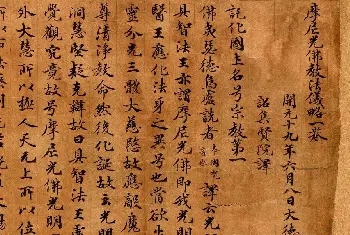 摩尼光佛教法儀略一卷
開元十九年六月八日大德
詔集賢院譯
託化國主名号宗教第一
佛夷瑟德烏盧詵者本國梵音也譯云光明
具智法王亦謂摩尼光佛即我光明
醫王應化法身之異号也當欲出
靈分光三體大慈愍故應敵魔
尊清淨教命然後化誕故云光明
洞慧堅疑克辯故曰具智法王
覺觀究竟故号摩尼光佛光明
外大慧所以極人天无上所以位